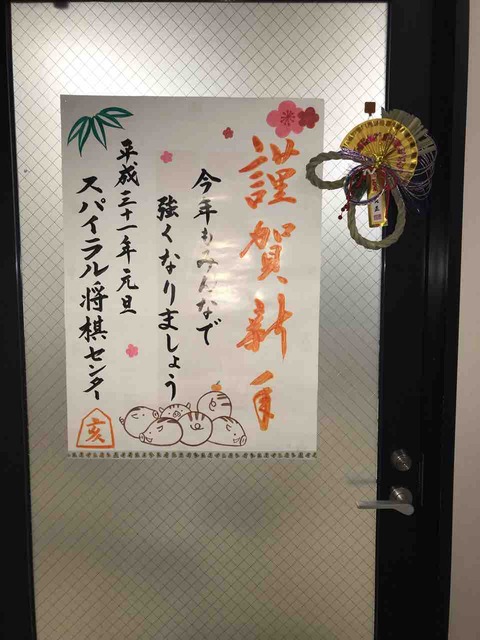 謹賀新年
今年もみんなで
強くなりましょう
平成三十一年元旦
スパイラル将棋センター
亥